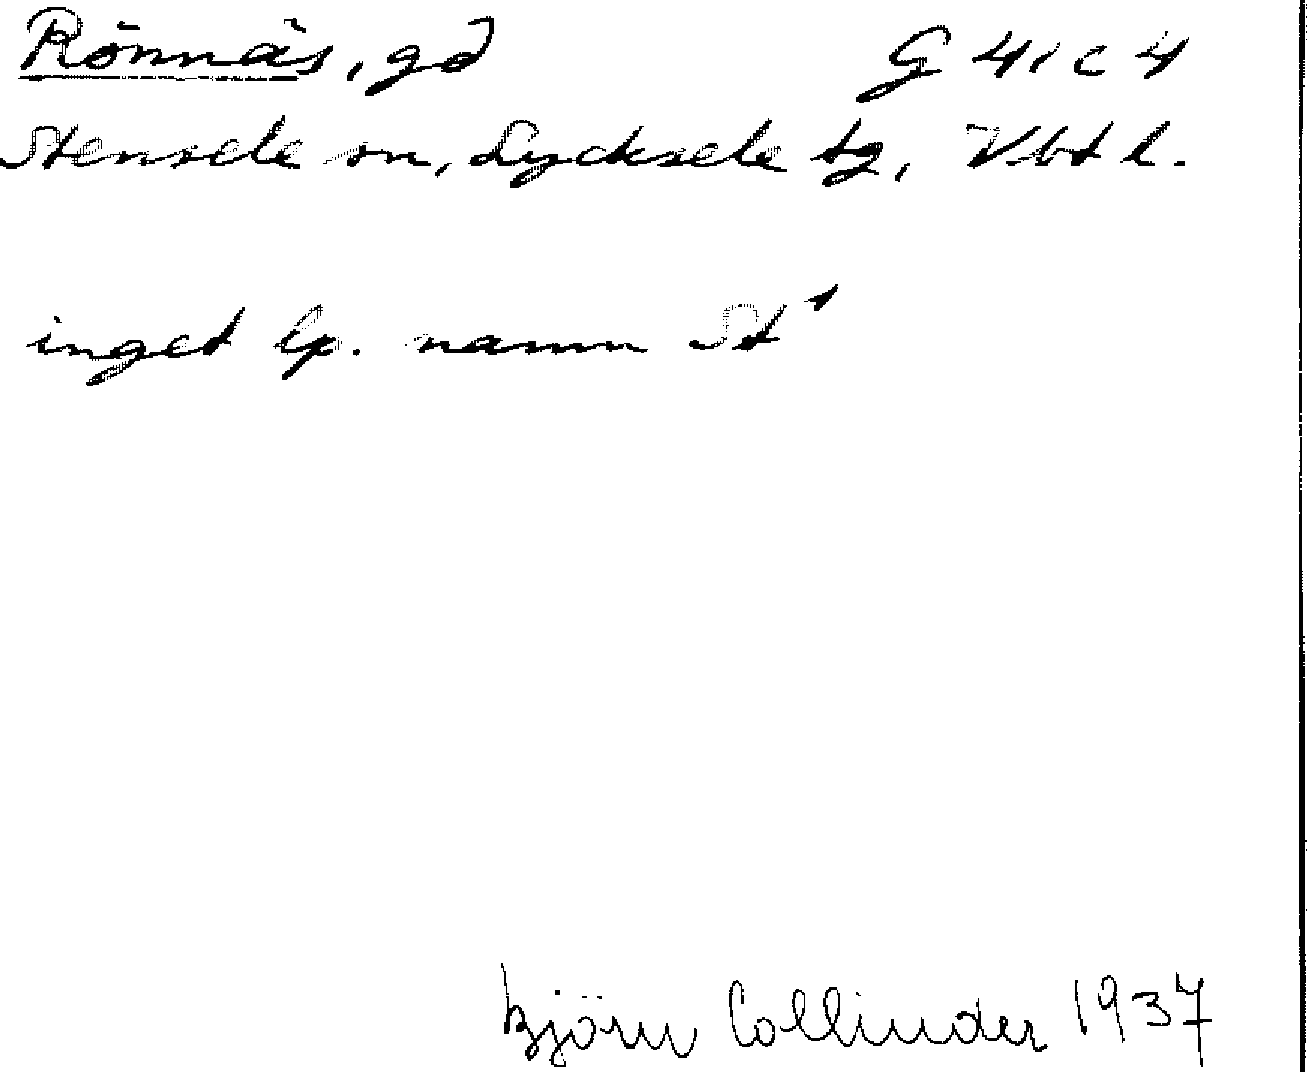 Rönnäs, gd G 41 c 4
Stensele sn, Lycksele tg, Vbt l.
inget lp. namn St¹
Björn Collinder 1937